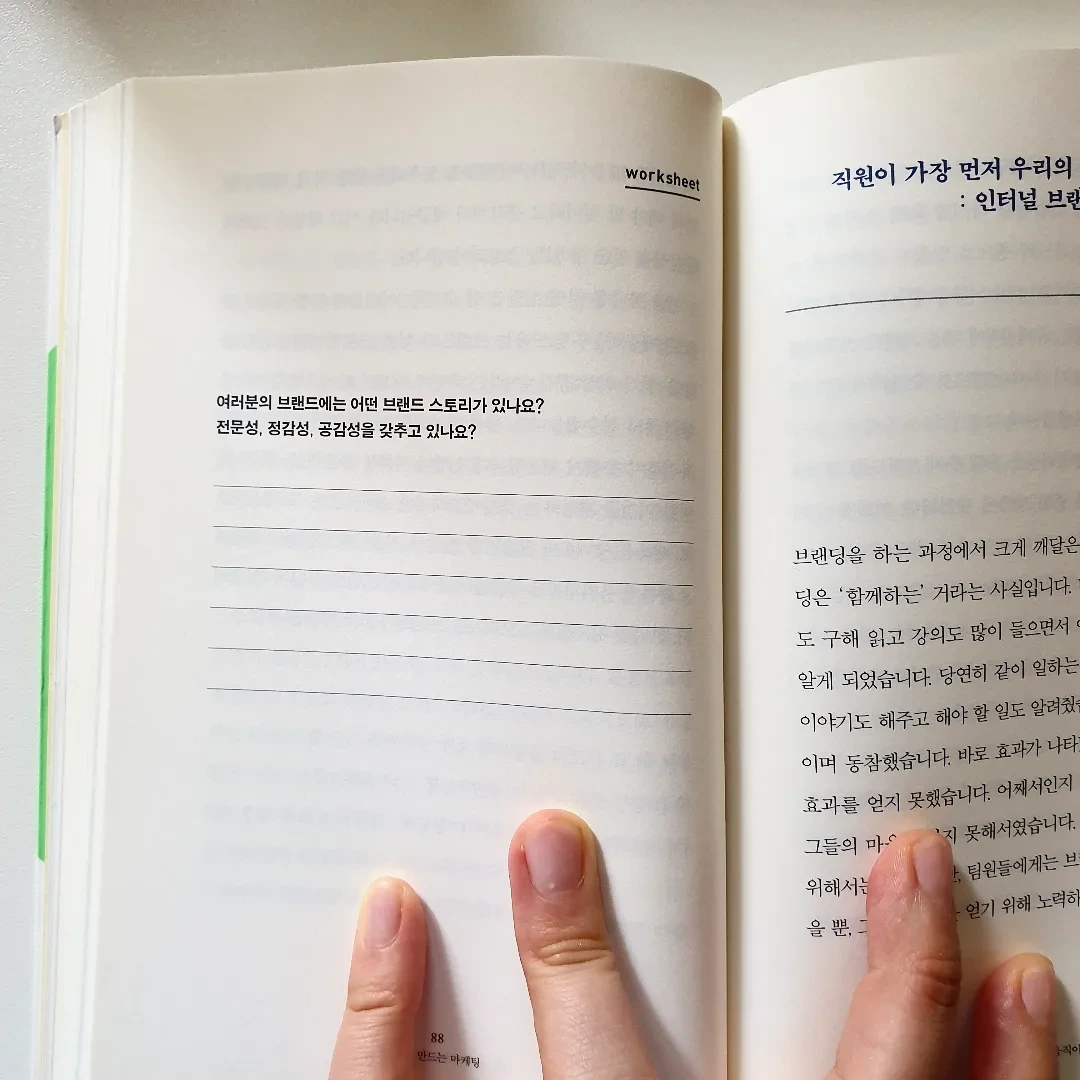 worksheet
여러분의 브랜드에는 어떤 브랜드 스토리가 있나요?
전문성, 정감성, 공감성을 갖추고 있나요?
88
만드는 마케팅
직원이 가장 먼저 우리의
: 인터널
브랜딩을 하는 과정에서 크게 깨달은
딩은 ‘함께하는’ 거라는 사실입니다.
도 구해 읽고 강의도 많이 들으면서
알게 되었습니다. 당연히 같이 일하는
이야기도 해주고 해야 할 일도
이며 동참했습니다. 바로 효과가
효과를 얻지 못했습니다. 어째서인지
그들의 못해서였습니다.
팀원들에게는
을 뿐, 얻기 위해